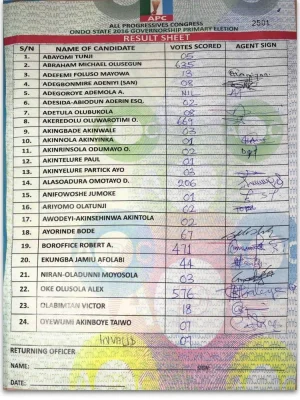 APC
ALL PROGRESSIVES CONGRESS
ONDO STATE 2016 GOVERNORSHIP PRIMARY ELECTION
2501
RESULT SHEET
S/N NAME OF CANDIDATE VOTES SCORED AGENT SIGN
1. ABAYOMI TUNJI 05
2. ABRAHAM MICHAEL OLUSEGUN 635
3. ADEFEMI FOLUSO MAYOWA 13
4. ADEGBONMIRE ADENIYI (SAN) 08
5. ADEGOROYE ADEMOLA A. NIL
6. ADESIDA-ABIODUN ADERIN ESQ. 02
7. ADETULA OLUBUKOLA 08
8. AKEREDOLU OLUWAROTIMI O. 669
9. AKINGBADE AKINWALE 03
10. AKINNOLA AKINYINKA 01
11. AKINRINSOLA ODUMAYO O. 02
12. AKINTELURE PAUL 01
13. AKINYELURE PARTICK AYO 03
14. ALASOADURA OMOTAYO D. 206
15. ANIFOWOSHE JUMOKE 01
16. ARIYOMO OLATUNJI 02
17. AWODEYI-AKINSEHINWA AKINTOLA 02
18. AYORINDE BODE 67
19. BOROFFICE ROBERT A. 471
20. EKUNGBA JAMIU AFOLABI 44
21. NIRAN-OLADUNNI MOYOSOLA 03
22. OKE OLUSOLA ALEX 576
23. OLABIMTAN VICTOR 18
24. OYEWUMI AKINBOYE TAIWO 07
Invalid
RETURNING OFFICER
NAME: SIGN:
DATE: